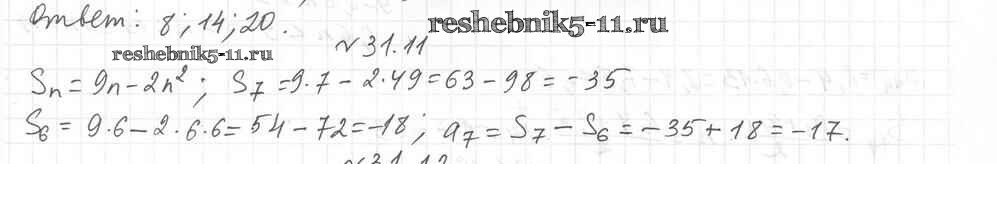 Ответ: 8; 14; 20.
reshebnik5-11.ru
№31.11
reshebnik5-11.ru
Sn = 9n - 2n²; S7 = 9·7 - 2·49 = 63 - 98 = -35
S6 = 9·6 - 2·6·6 = 54 - 72 = -18; a7 = S7 - S6 = -35 + 18 = -17.